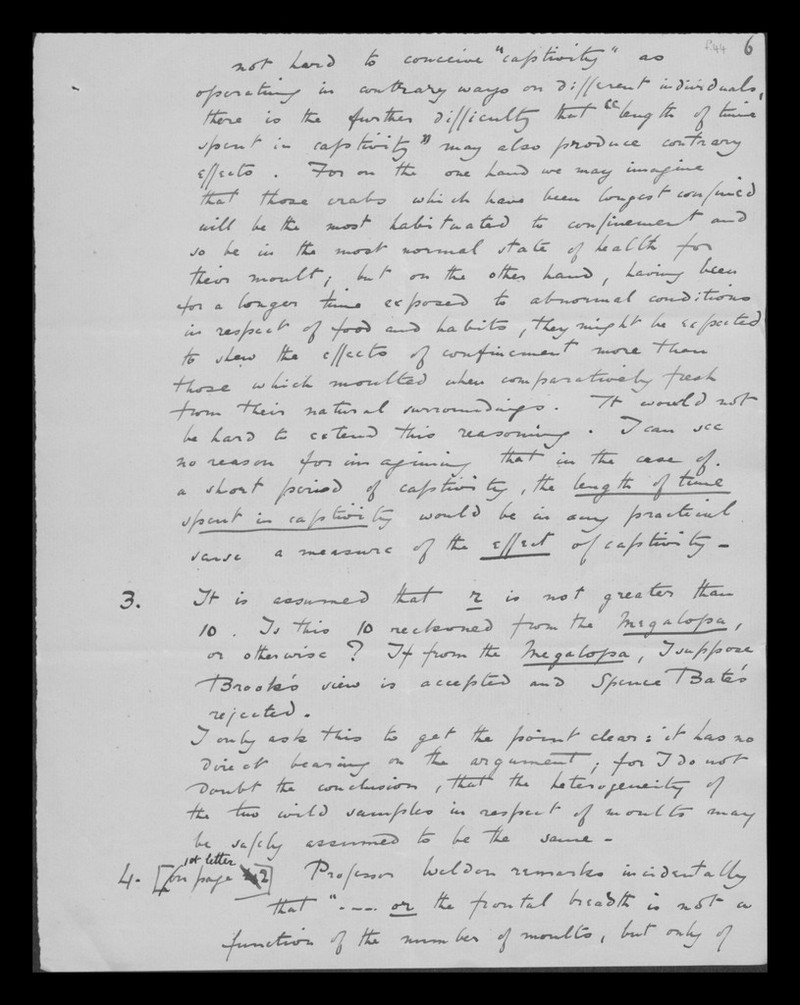 f44 6
not hard to conceive "captivity" as
operating in contrary ways on different individuals,
there is the further difficulty that "length of time
spent in captivity" may also produce contrary
effects. For on the one hand we may imagine
that those crabs which have been longest confined
will be the most habituated to confinement and
so be in the most normal state of health for
their moult; but on the other hand, having been
for a longer time exposed to abnormal conditions
in respect of food and habits, they might be expected
to shew the effects of confinement more than
those which moulted when comparatively fresh
from their natural surroundings. It would not
be hard to extend this reasoning. I can see
no reason for imagining that in the case of
a short period of captivity, the length of time
spent in captivity would be in any practical
sense a measure of the effect of captivity –
3. It is assumed that r is not greater than
10. Is this 10 reckoned from the Megalopa,
or otherwise? If from the Megalopa, I suppose
Brook's view is accepted and Spence Bate's
rejected.
I only ask this to get the point clear: it has no
direct bearing on the argument; for I do not
doubt the conclusion, that the heterogeneity of
the two wild samples in respect of moults may
be safely assumed to be the same –
1st letter
4. [on page 2] Professor Weldon remarks incidentally
that "---- or the frontal breadth is not a
function of the number of moults, but only of